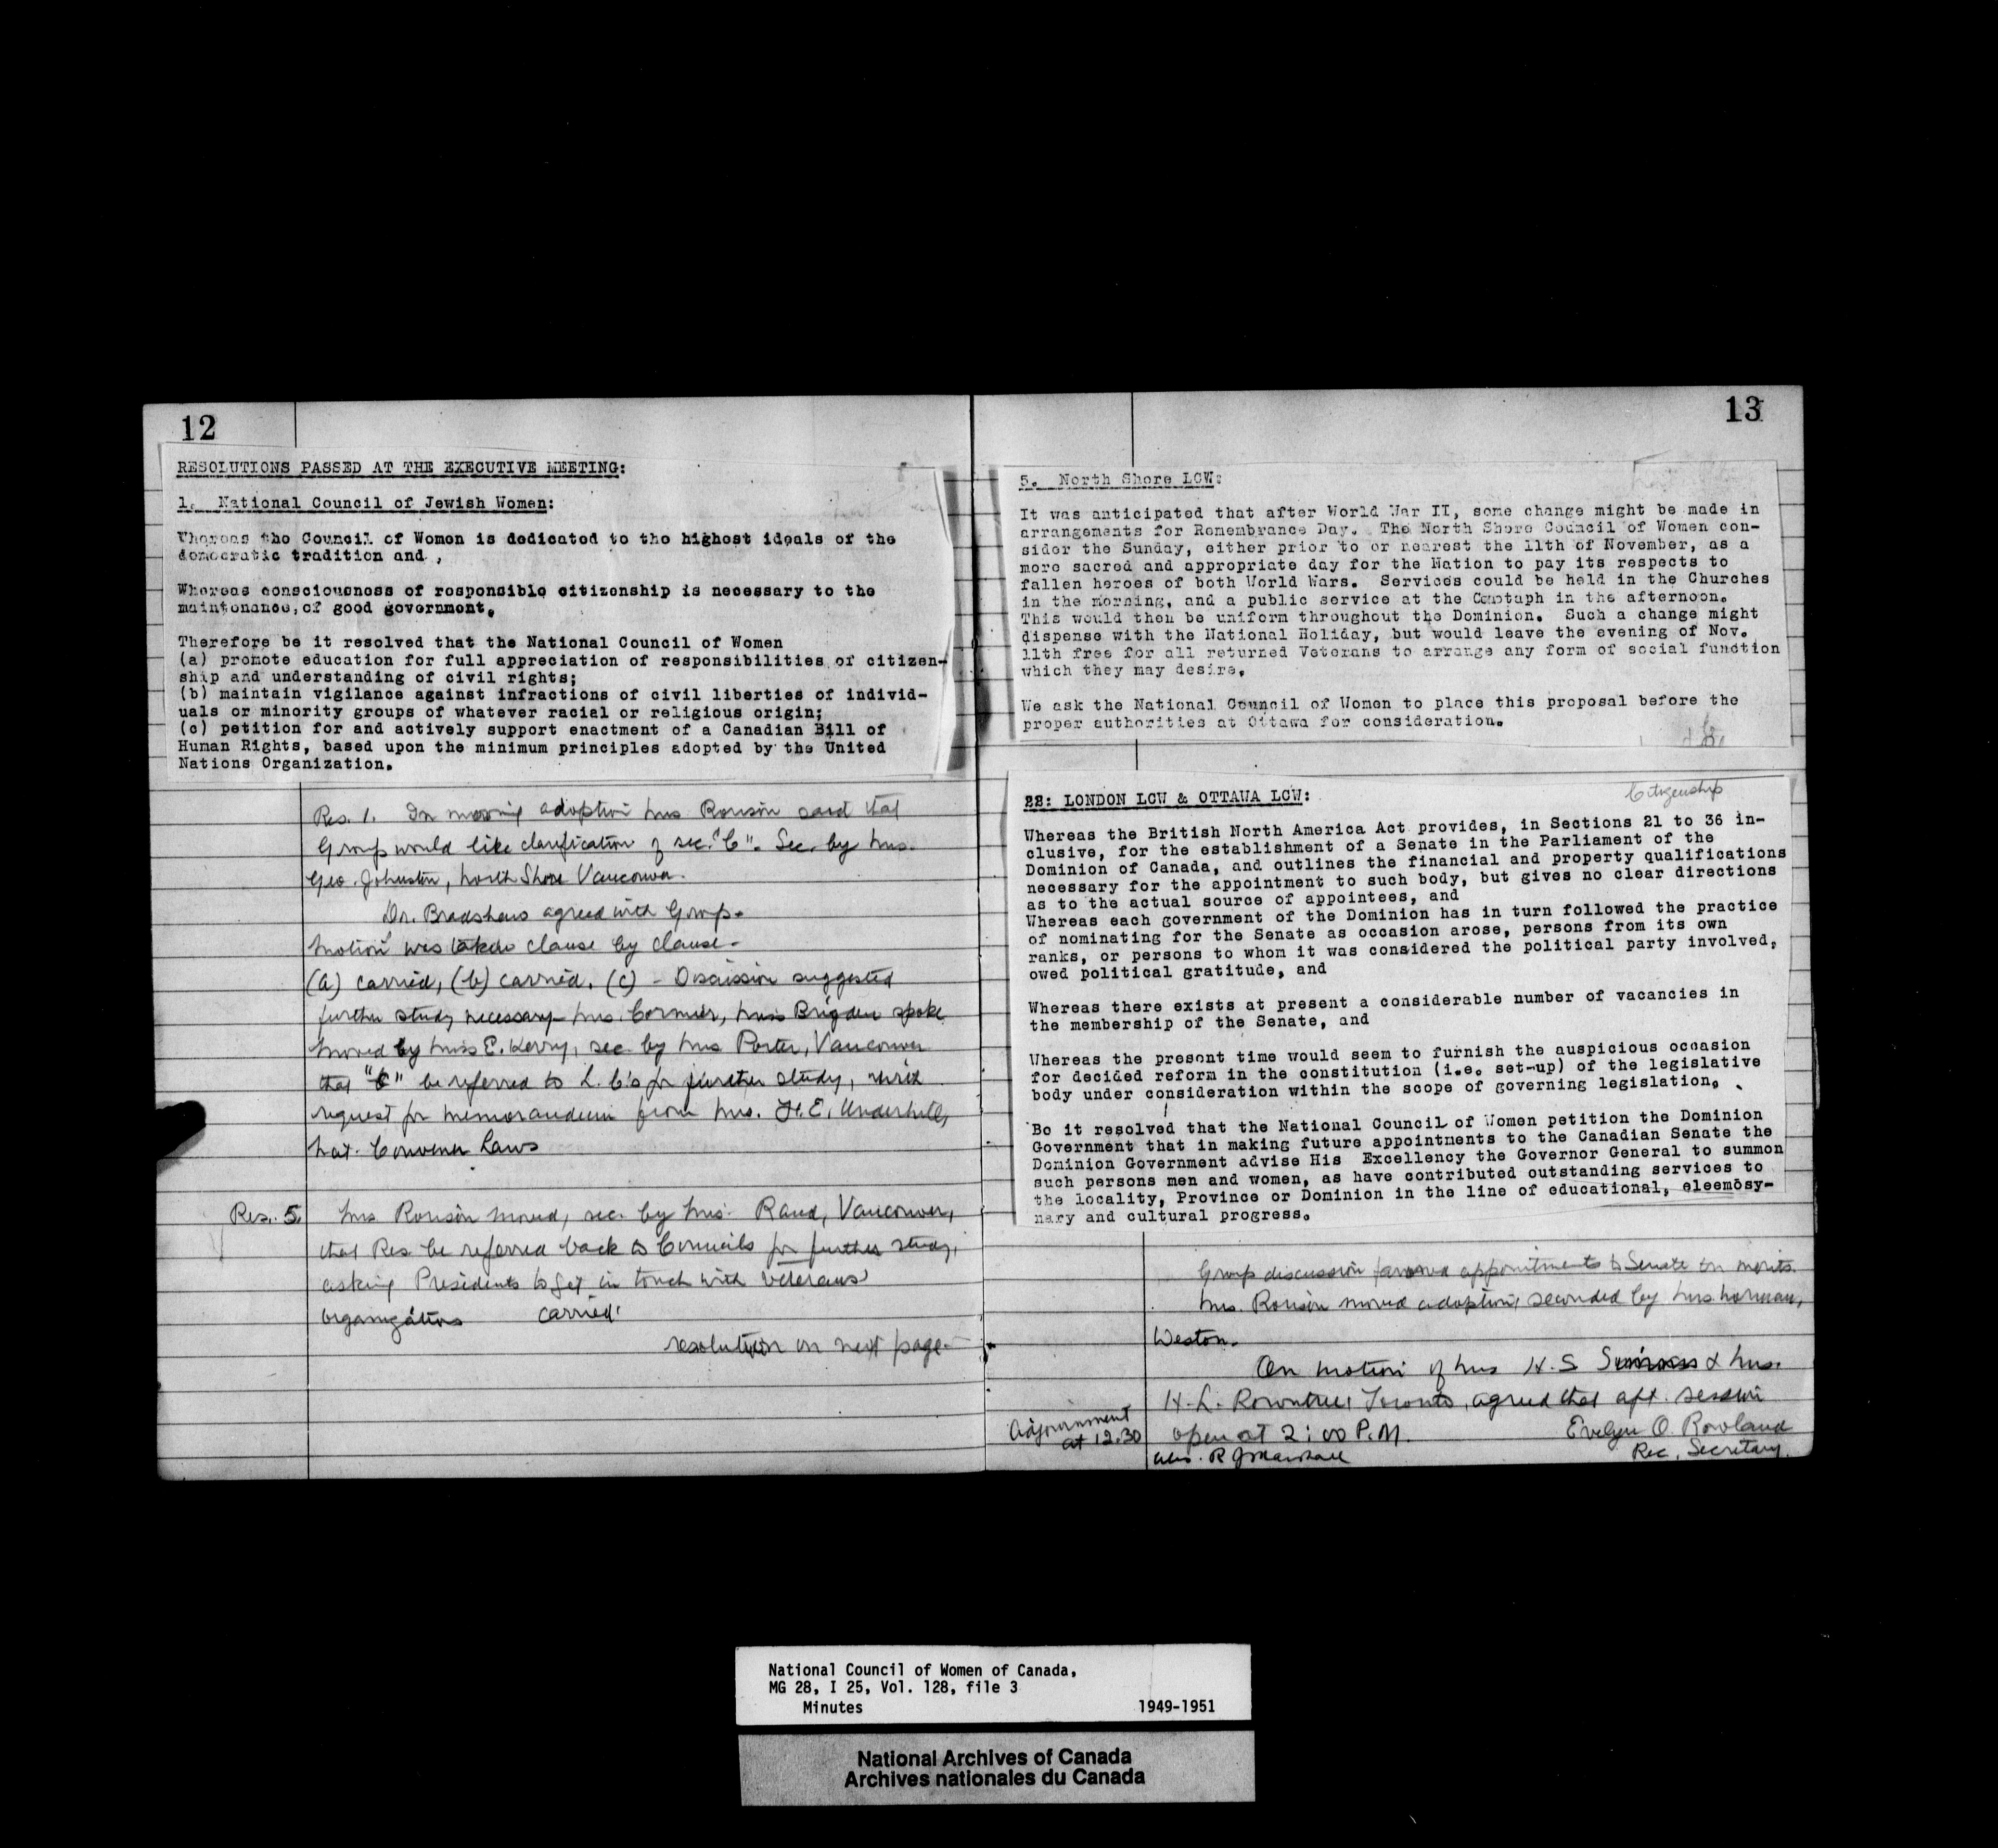 12
RESOLUTIONS PASSED AT THE EXECUTIVE MEETING:
1. National Council of Jewish Women:
Whereas the Council of Women is dedicated to the highest ideals of the
democratic tradition and ,
Whereas consciousness of responsible citizenship is necessary to the
maintenance, of good government.
Therefore be it resolved that the National Council of Women
(a) promote education for full appreciation of responsibilities of citizen-
ship and understanding of civil rights;
(b) maintain vigilance against infractions of civil liberties of individ-
uals or minority groups of whatever racial or religious origin;
(c) petition for and actively support enactment of a Canadian Bill of
Human Rights, based upon the minimum principles adopted by the United
Nations Organization.
Res. 1. In moving adoption Mrs Ronson said that
Group would like clarification of sec. "C". Sec. by Mrs.
Geo. Johnston, North Shore Vancouver.
Dr. Bradshaw agreed with Group.
Motion was taken clause by clause -
(a) carried, (b) carried. (c) - Discussion suggested
further study necessary - Mrs. Cormier, Miss Brigden spoke
Moved by Miss E. Kerry, sec. by Mrs Porter, Vancouver
that "C" be referred to L. C's for further study, with
request for memorandum from Mrs. F. E. Underhill,
Nat. Convener Laws
Res. 5. Mrs. Ronson moved, sec. by Mrs. Rand, Vancouver,
that Res. be referred back to Councils for further study,
asking Presidents to get in touch with Veterans'
organizations carried.
resolution on next page -
13
5. North Shore LCW:
It was anticipated that after World War II, some change might be made in
arrangements for Remembrance Day. The North Shore Council of Women con-
sider the Sunday, either prior to or nearest the 11th of November, as a
more sacred and appropriate day for the Nation to pay its respects to
fallen heroes of both World Wars. Services could be held in the Churches
in the morning, and a public service at the Cenotaph in the afternoon.
This would then be uniform throughout the Dominion. Such a change might
dispense with the National Holiday, but would leave the evening of Nov.
11th free for all returned Veterans to arrange any form of social function
which they may desire.
We ask the National Council of Women to place this proposal before the
proper authorities at Ottawa for consideration.
Citizenship
22: LONDON LCW & OTTAWA LCW:
Whereas the British North America Act provides, in Sections 21 to 36 in-
clusive, for the establishment of a Senate in the Parliament of the
Dominion of Canada, and outlines the financial and property qualifications
necessary for the appointment to such body, but gives no clear directions
as to the actual source of appointees, and
Whereas each government of the Dominion has in turn followed the practice
of nominating for the Senate as occasion arose, persons from its own
ranks, or persons to whom it was considered the political party involved,
owed political gratitude, and
Whereas there exists at present a considerable number of vacancies in
the membership of the Senate, and
Whereas the present time would seem to furnish the auspicious occasion
for decided reform in the constitution (i.e. set-up) of the legislative
body under consideration within the scope of governing legislation.
Be it resolved that the National Council of Women petition the Dominion
Government that in making future appointments to the Canadian Senate the
Dominion Government advise His Excellency the Governor General to summon
such persons men and women, as have contributed outstanding services to
the locality, Province or Dominion in the line of educational, eleemosy-
nary and cultural progress.
Group discussion favored appointments to Senate on merits.
Mrs. Ronson moved adoption, seconded by Mrs. Norman,
Weston.
On motion of Mrs H. S & Mrs.
H. L. Rowntree, Toronto, agreed that aft. session
open at 2:00 P.M.
Adjournment
at 12.30
Evelyn O. Rowland
Rec. Secretary.
Mrs. R J Marshall
National Council of Women of Canada,
MG 28, I 25, Vol. 128, file 3
Minutes 1949-1951
National Archives of Canada
Archives nationales du Canada